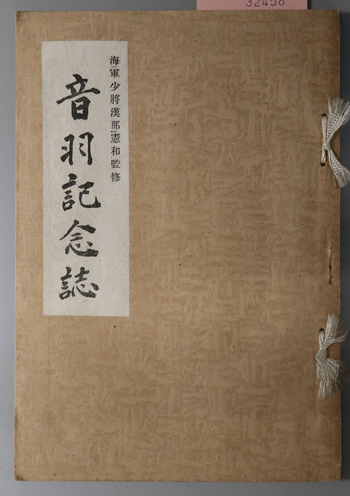 海軍少將漢那憲和監修
音羽記念誌
32458